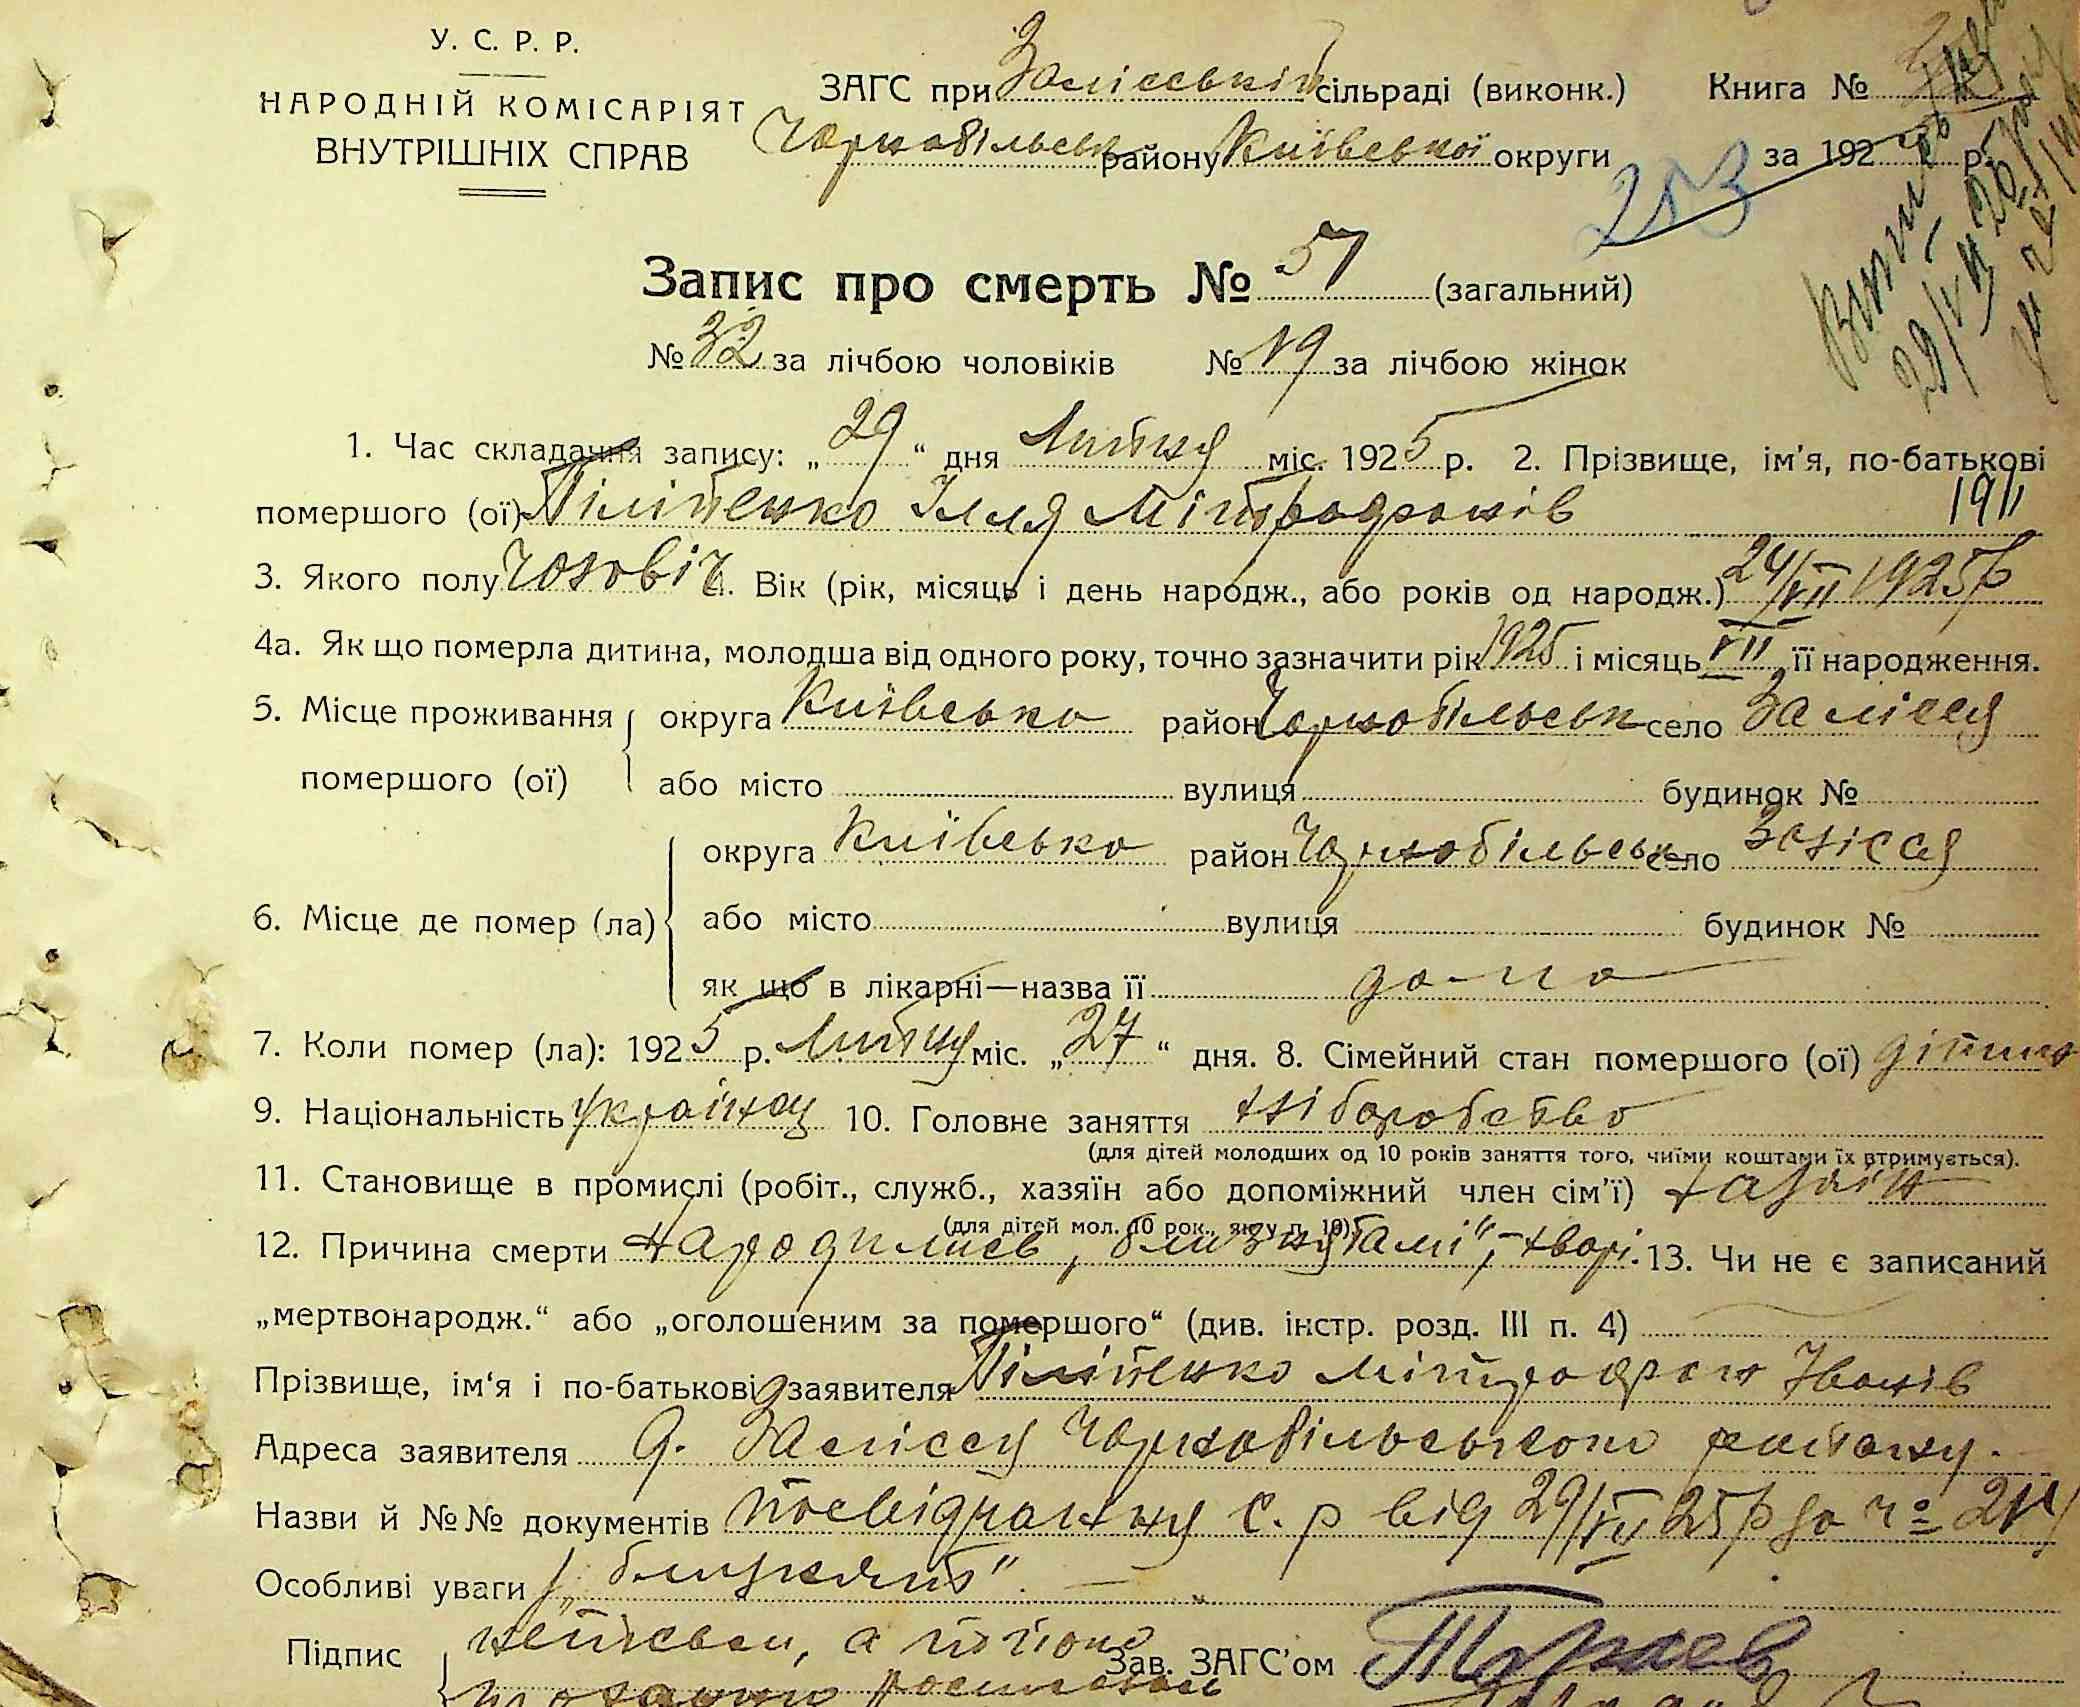 У. С. Р. Р.
НАРОДНІЙ КОМІСАРІЯТ
ВНУТРІШНІХ СПРАВ
ЗАГС при Заліській сільраді (виконк.) Книга №
Чорнобільськ району Київської округи за 192 р.
253
Запис про смерть № 51 (загальний)
№ 32 за лічбою чоловіків № 19 за лічбою жінок
1. Час складання запису: „29“ дня Липня міс. 1925 р. 2. Прізвище, ім'я, по-батькові
помершого (ої) Піліпенко Ілля Мітрофанів
3. Якого полу чоловіч. Вік (рік, місяць і день народж., або років од народж.) 24/VII 1925 р
4а. Як що померла дитина, молодша від одного року, точно зазначити рік 1925 і місяць VII її народження.
5. Місце проживання помершого (ої) округа Київсько район Чорнобільськ село Залісся
або місто вулиця будинок №
6. Місце де помер (ла) округа Київсько район Чорнобільськ село Залісся
або місто вулиця будинок №
як що в лікарні—назва її дома
7. Коли помер (ла): 1925 р. Липня міс. „27“ дня. 8. Сімейний стан помершого (ої) дітина
9. Національність українец 10. Головне заняття хліборобство
(для дітей молодших од 10 років заняття того, чиїми коштами їх втримується).
11. Становище в промислі (робіт., служб., хазяїн або допоміжний член сім'ї) хазяїн
(для дітей мол. 10 рок., як у п. 10).
12. Причина смерти народились „близнятамі“, хворі. 13. Чи не є записаний
„мертвонародж.“ або „оголошеним за помершого“ (див. інстр. розд. III п. 4)
Прізвище, ім'я і по-батькові заявителя Піліпенко Мітрофан Іванів
Адреса заявителя с. Залісся Чорнобільського району.
Назви й №№ документів посвідчання с. р від 29/VII 25 р за ч
Особливі уваги „близнят“.
Підпис неписьмен, а
Зав. ЗАГС'ом